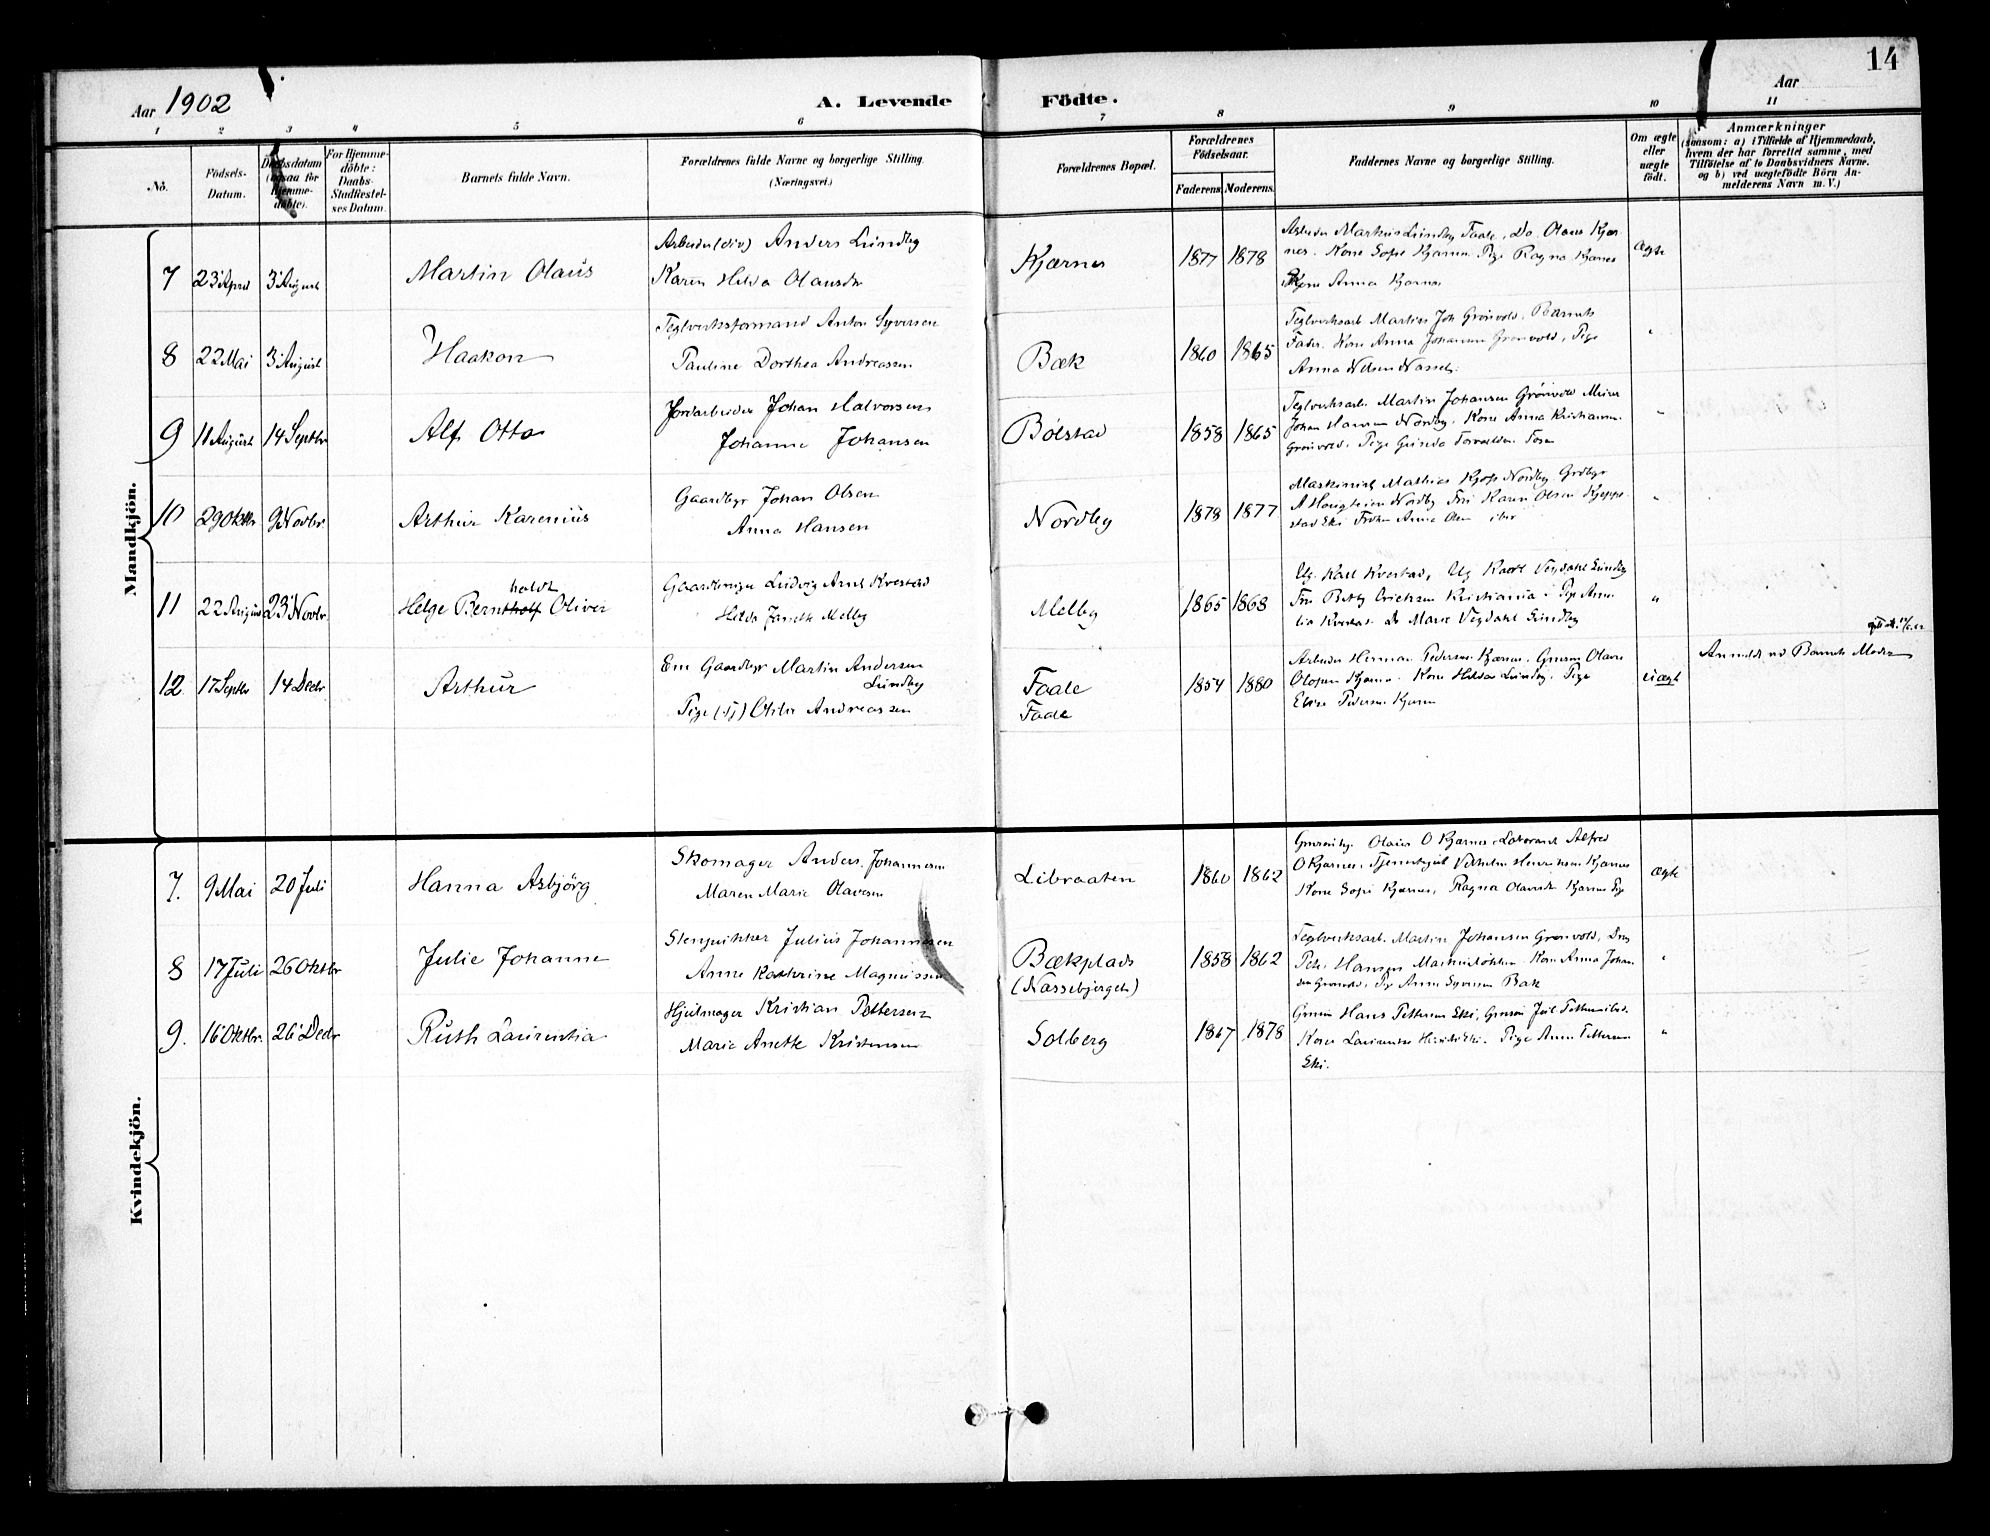 14
Aar 1902
A. Levende Födte.
Aar
1 2 3 4 5 6 7 8 9 10 11
No.
Födsels-Datum.
Daabsdatum (ogsaa for hjemme-döbte).
For Hjemme-döbte: Daabs-Stadfæstel-ses Datum.
Barnets fulde Navn.
Forældrenes fulde Navne og borgerlige Stilling. (Næringsvei.)
Forældrenes Bopæl.
Forældrenes Födselsaar.
Faderens. Moderens.
Faddernes Navne og borgerlige Stilling.
Om ægte eller uægte födt.
Anmærkninger
(saasom: a) i Tilfælde af Hjemmedaab,
hvem der har forrettet samme, med
Tilföielse af to Daabsvidners Navne.
og b) ved uægtefödte Börn An-
melderens Navn m. V.)
Mandkjön.
7 23 April 3 August Martin Olaus
Arbeider (div) Anders Lundby
Karen Hilda Olausdtr
Kjærnes 1877 1878
Arbeider Markus Lundby Faale, Do. Olaus Kjær
nes. Kone Sofie Kjærnes Pige Ragna Kjærnes
Anna Kjærnes
Ægte
8 22 Mai 3 August Haakon
Teglverksformand Anton Syversen
Pauline Dorthea Andreassen
Bæk 1860 1865
Teglverksarb. Martin Joh Grönvold, Barnets
Fader. Kone Anna Johansen Grönvold, Pige
Anna Nilsen Nasset.
"
9 11 August 14 Septbr Alf Otto
Jordarbeider Johan Halvorsen
Johanne Johansen
Bölstad 1858 1865
Teglverksarb. Martin Johansen Grönvold
Johan Hansen Nordby. Kone Anna Kristiansen
Grönvold. Pige Gunda
"
10 29 Oktbr 9 Novbr Arthur Karenius
Gaardbgr Johan Olsen
Anna Hansen
Nordby 1878 1877
Maskinist Mathias Nordby Grdbgr
A Haugstein Nordby Fru Karen Olsen
stad Ski Frøken Anna Olsen ibid
"
11 22 August 23 Novbr Helge Berntholf Oliver
holdt
Gaardbruger Ludvig Kvestad
Hilda Janette Melby
Melby 1865 1868
Ug. Karl Kvestad, Ug Karl Vegdahl Sundby
Fru Betty Ericksen Kristiania. Pige Ama
lia Kvestad do Marie Vegdahl Sundby
"
12 17 Septbr 14 Decbr Arthur
Em Gaardbgr Martin Andersen
Lundby
Pige (Tj) Otilie Andreassen
Faale
Faale
1854 1880
Arbeider Herman Pedersen Kjærnes. Olava
Olafsen Kjærnes. Kone Hilda Lundby. Pige
Elise Pedersen Kjærnes
uægte
Anmeldt ved Barnets Moder
Kvindekjön.
7. 9 Mai 20 Juli Hanna Asbjörg
Skomager Anders Johannesen
Maren Marie Olavesen
Libraaten 1860 1862
Olaus O Kjærnes. Alfred
O Kjærnes. Vilhelm Henriksen Kjærnes
Kone Sofie Kjærnes, Ragna Olausdtr Kjærnes Pige
ægte
8 17 Juli 26 Oktbr Julie Johanne
Stenpikker Julius Johannesen
Anne Kathrine Magnussen
Bækplads
(Nassebjerget)
1858 1862
Teglverksarb. Martin Johansen Grönvold,
Hansen Kone Anna Johan
sen Grönvold, Pige Anna Syversen Bæk
"
9. 16 Oktbr. 26 Decbr Ruth Laurentia
Hjulmager Kristian Pettersen
Marie Anette Kristensen
Solberg 1867 1878
Hans Pettersen Ski,
Kone Ski. Pige Anna Pettersen
Ski.
"